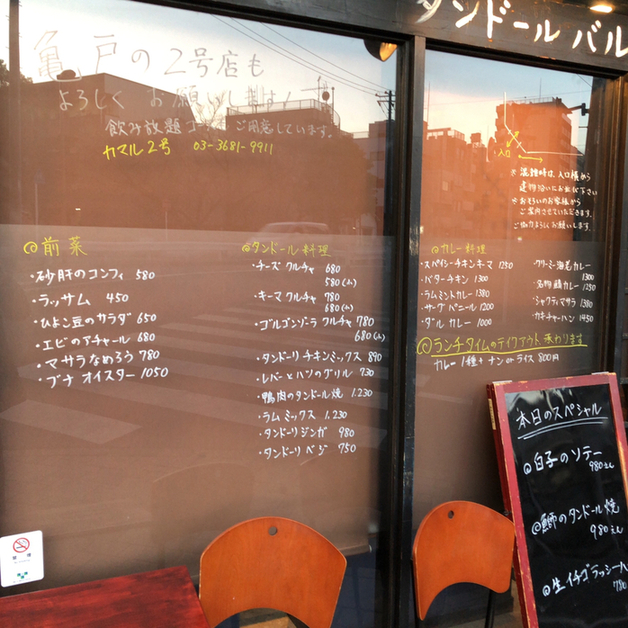 タンドール バル
亀戸の2号店も
よろしく お願いします!
飲み放題コースもご用意しています。
カマル2号 03-3681-9911
入口
※混雑時は、入口横から
建物沿いにお並び下さい
※おそろいのお客様から
ご案内させていただきます。
ご協力よろしくお願いします。
@前菜
・砂肝のコンフィ 580
・ラッサム 450
・ひよこ豆のサラダ 650
・エビのアチャール 680
・マサラなめろう 780
・ブナ オイスター 1050
@タンドール料理
・チーズ クルチャ 680
580(ハ)
・キーマ クルチャ 780
・ゴルゴンゾーラ クルチャ 780
680(ハ)
・タンドリーチキンミックス 890
・レバーとハツのグリル 730
・鴨肉のタンドール焼 1.230
・ラム ミックス 1.230
・タンドーリ ジンガ 980
・タンドーリ ベジ 750
@カレー料理
・スパイシーチキンキーマ 1250
・バターチキン 1300
・ラムミントカレー 1380
・サーグ パニール 1200
・ダル カレー 1000
・クリーミー海老カレー
1300
・名物鯖カレー
1250
・シャクティマサラ 1380
・カキチャーハン 1450
@ランチタイムのテイクアウト 承わります
カレー1種+ナンorライス 800円
本日のスペシャル
@白子のソテー
980えん
@鰤のタンドール焼
980えん
@生イチゴラッシー
780
禁煙